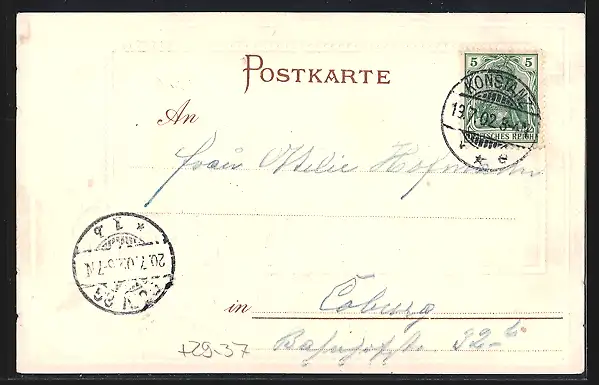 POSTKARTE
5 5
KONSTANZ
19.7.02.
DEUTSCHES REICH
An
Frau Ottilie Hofmann
* 1 b
20.7.02.6-7N
COBURG
in Coburg
Bahnhofstr. 32
+29.37